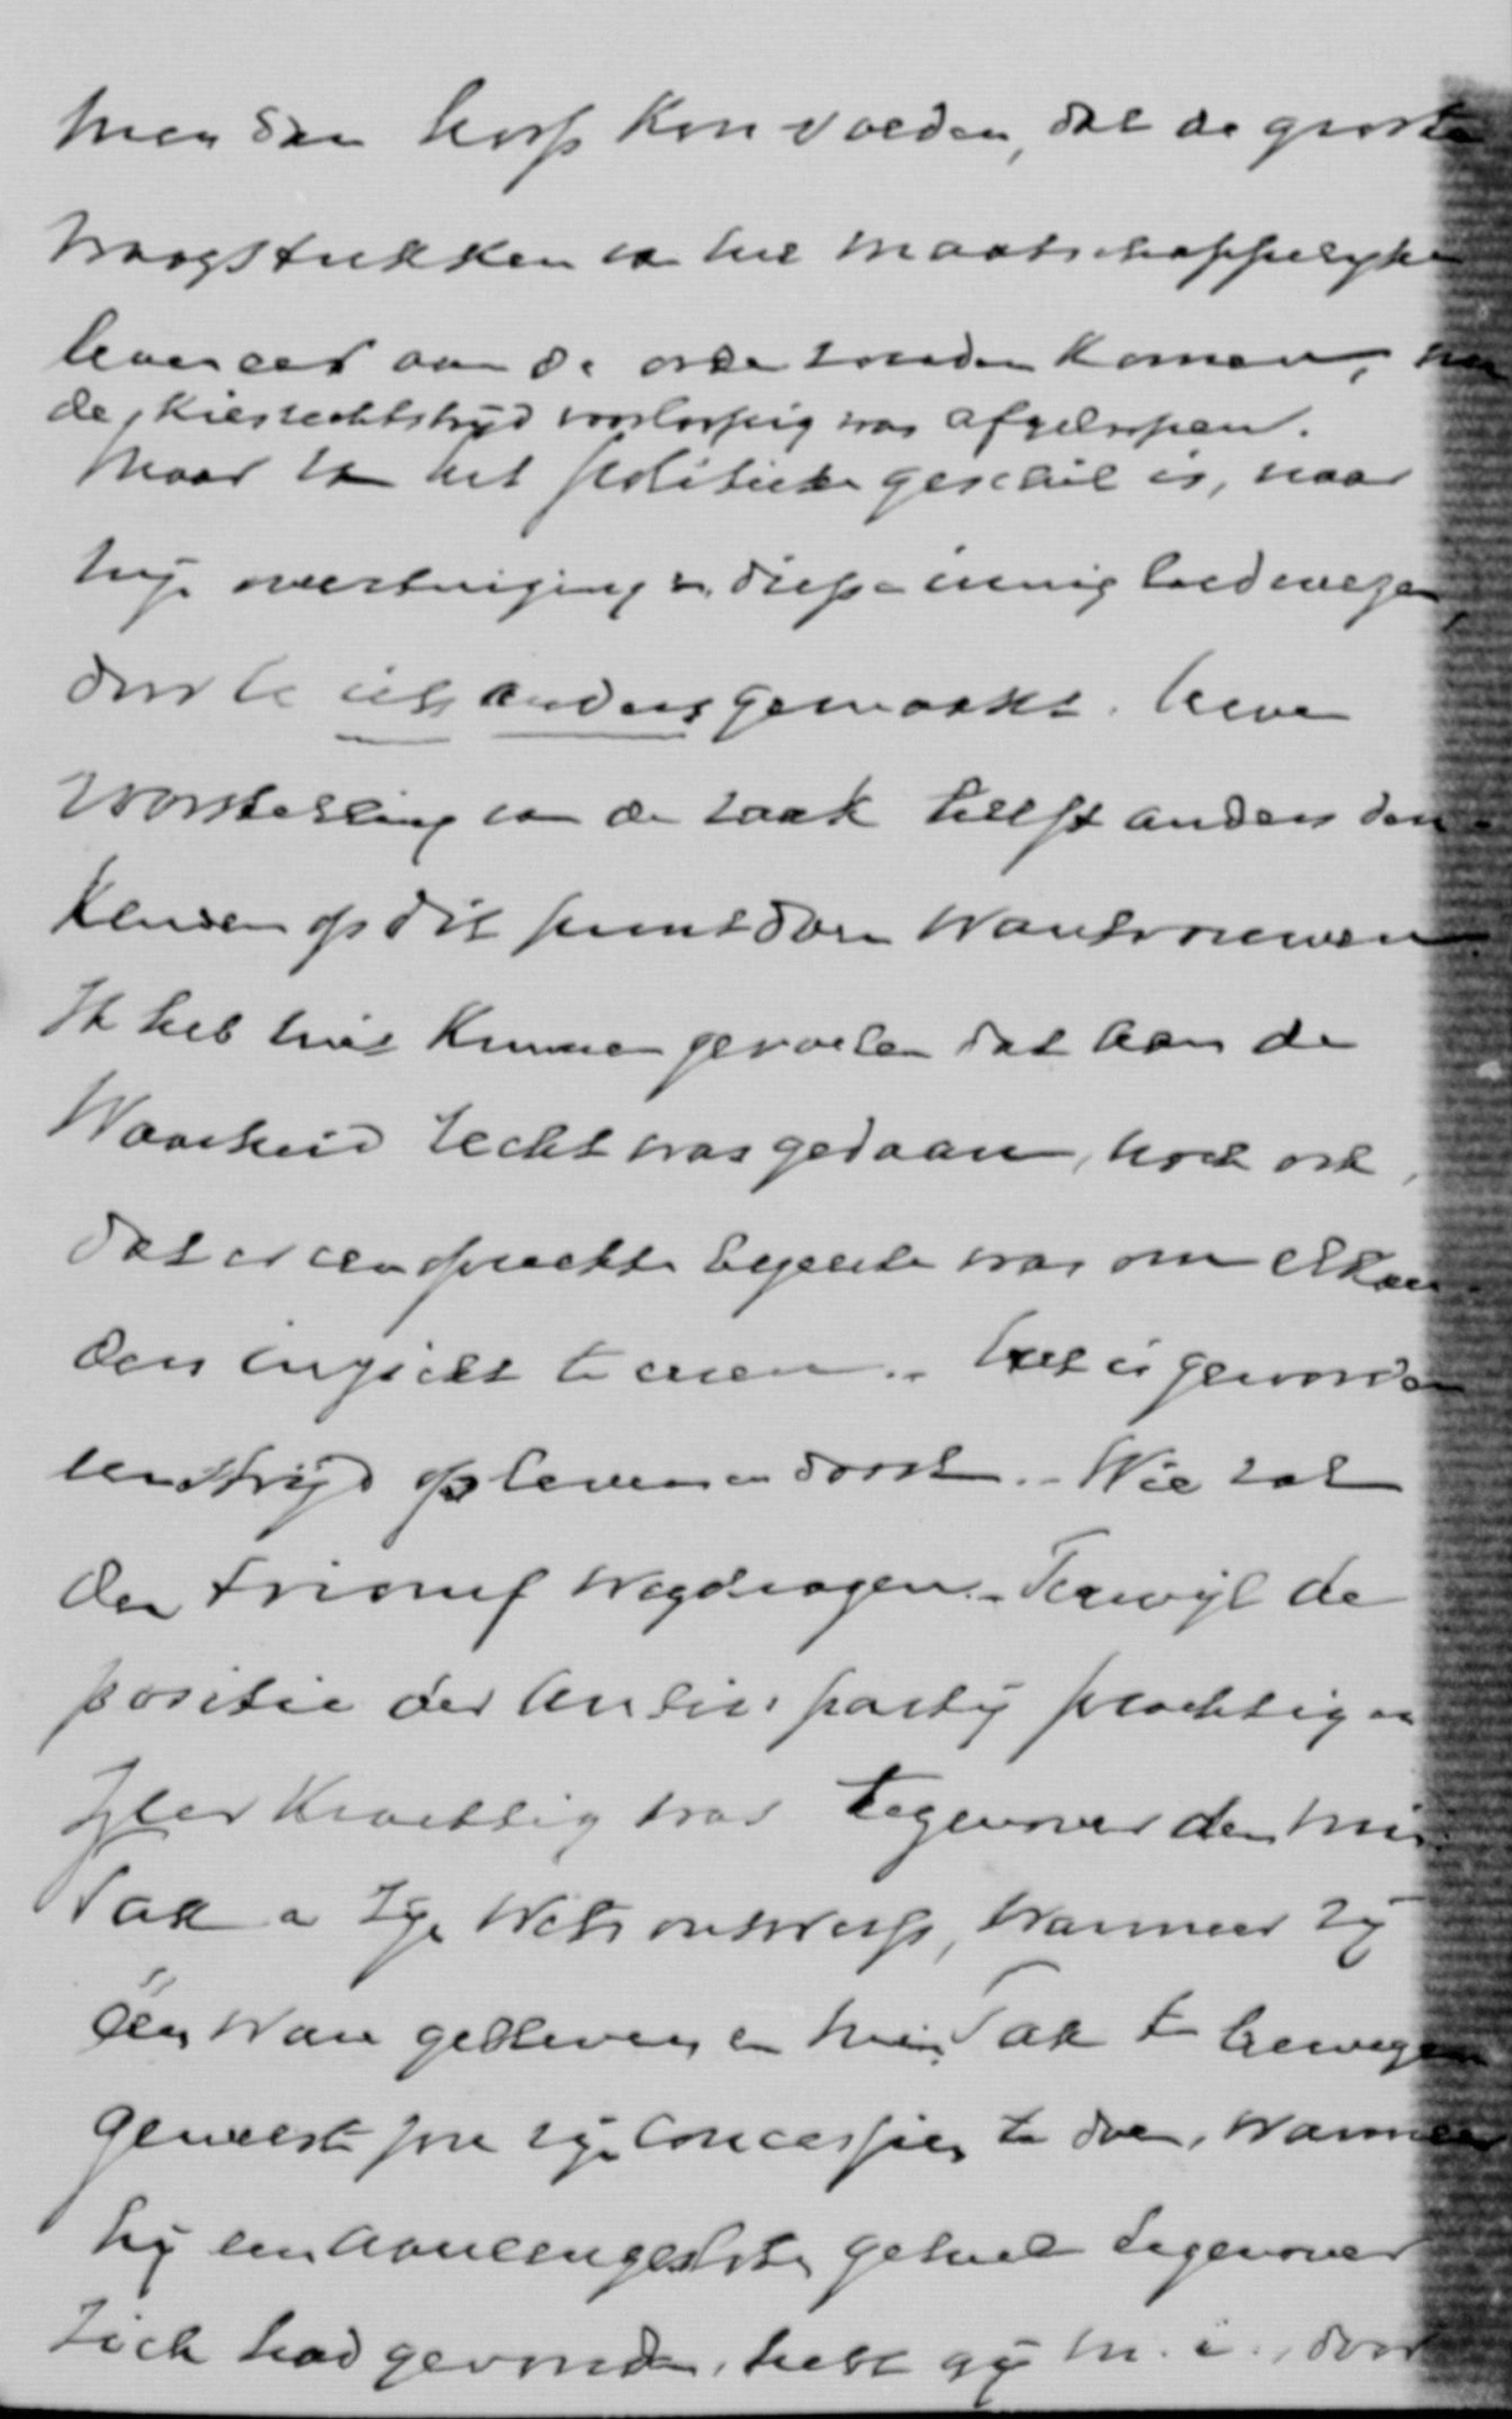 men dan hoop kon voeden, dat de groote
vraagstukken van het maatschappelyke
leven eerst aan de orde zouden komen, 
de kiesrechtstryd voorloopig was afgeloopen.
Maar van het politieke geschil is, naar
myn overtuiging en diep innig leedwezen,
door U iets anders gemaakt. Uwe
voorstelling van de zaak heeft anders den-
kenden op dit punt doen wantrouwen.
Ik heb niet kunnen gevoelen dat aan de
Waarheid recht was gedaan, noch ook,
dat er een oprechte begeerte was om elkan-
ders inzicht te eeren. - Het is geworden
een stryd op leven en dood. - Wie zal
den triomf wegdragen. - Terwyl de
positie der Antir. party prachtig en
yzer krachtig was tegenover den min.
Tak en zyn Wetsontwerp, wanneer zy
één ware gebleven en min. Tak te bewegen
geweest zou zyn concessies te doen, wanneer
hy een aaneengesloten geheel tegenover
zich had gevonden, hebt gy m. i., door